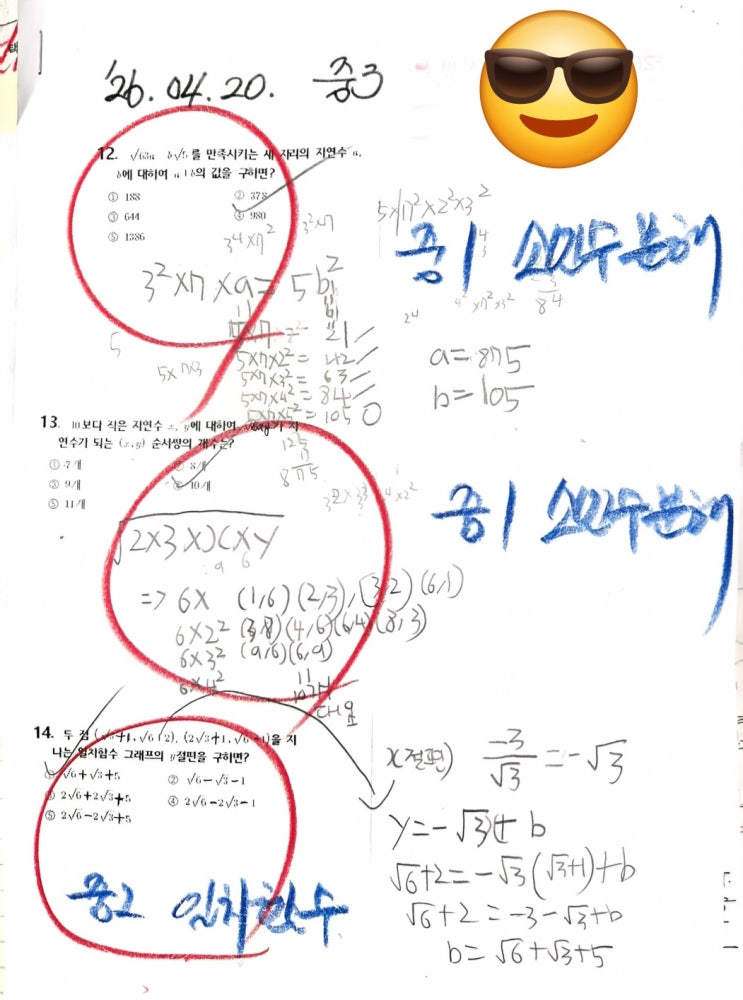 '26. 04. 20. 중3
12. √63a b√5를 만족시키는 세 자리의 자연수 a,
b에 대하여 a+b의 값을 구하면?
① 188 ② 378
③ 644 ④ 980
⑤ 1386
3⁴×7² 3²×7
5×7²×2²×3²
중1 소인수분해
3²×7×a = 5b²
5×7×3
5×7×2² = 42
5×7×3² = 63
5×7×4² = 84
5×7×5² = 105 O
125
875
a=875
b=105
13. 10보다 작은 자연수 x, y에 대하여 √6xy가 자
연수가 되는 (x, y) 순서쌍의 개수는?
① 7개 ② 8개
③ 9개 ④ 10개
⑤ 11개
중1 소인수분해
√2×3×x×y
=> 6× (1,6) (2,3), (3,2) (6,1)
6×2² (3,8) (4,6) (6,4) (8,3)
6×3² (9,6) (6,9)
6×4²
14. 두 점 (√3+1, √6+2), (2√3+1, √6-1)을 지
나는 일차함수 그래프의 y절편을 구하면?
① √6+√3+5 ② √6-√3-1
③ 2√6+2√3+5 ④ 2√6-2√3-1
⑤ 2√6-2√3+5
중2 일차함수
x절편) -3/√3 = -√3
y=-√3x+b
√6+2=-√3(√3+1)+b
√6+2=-3-√3+b
b=√6+√3+5